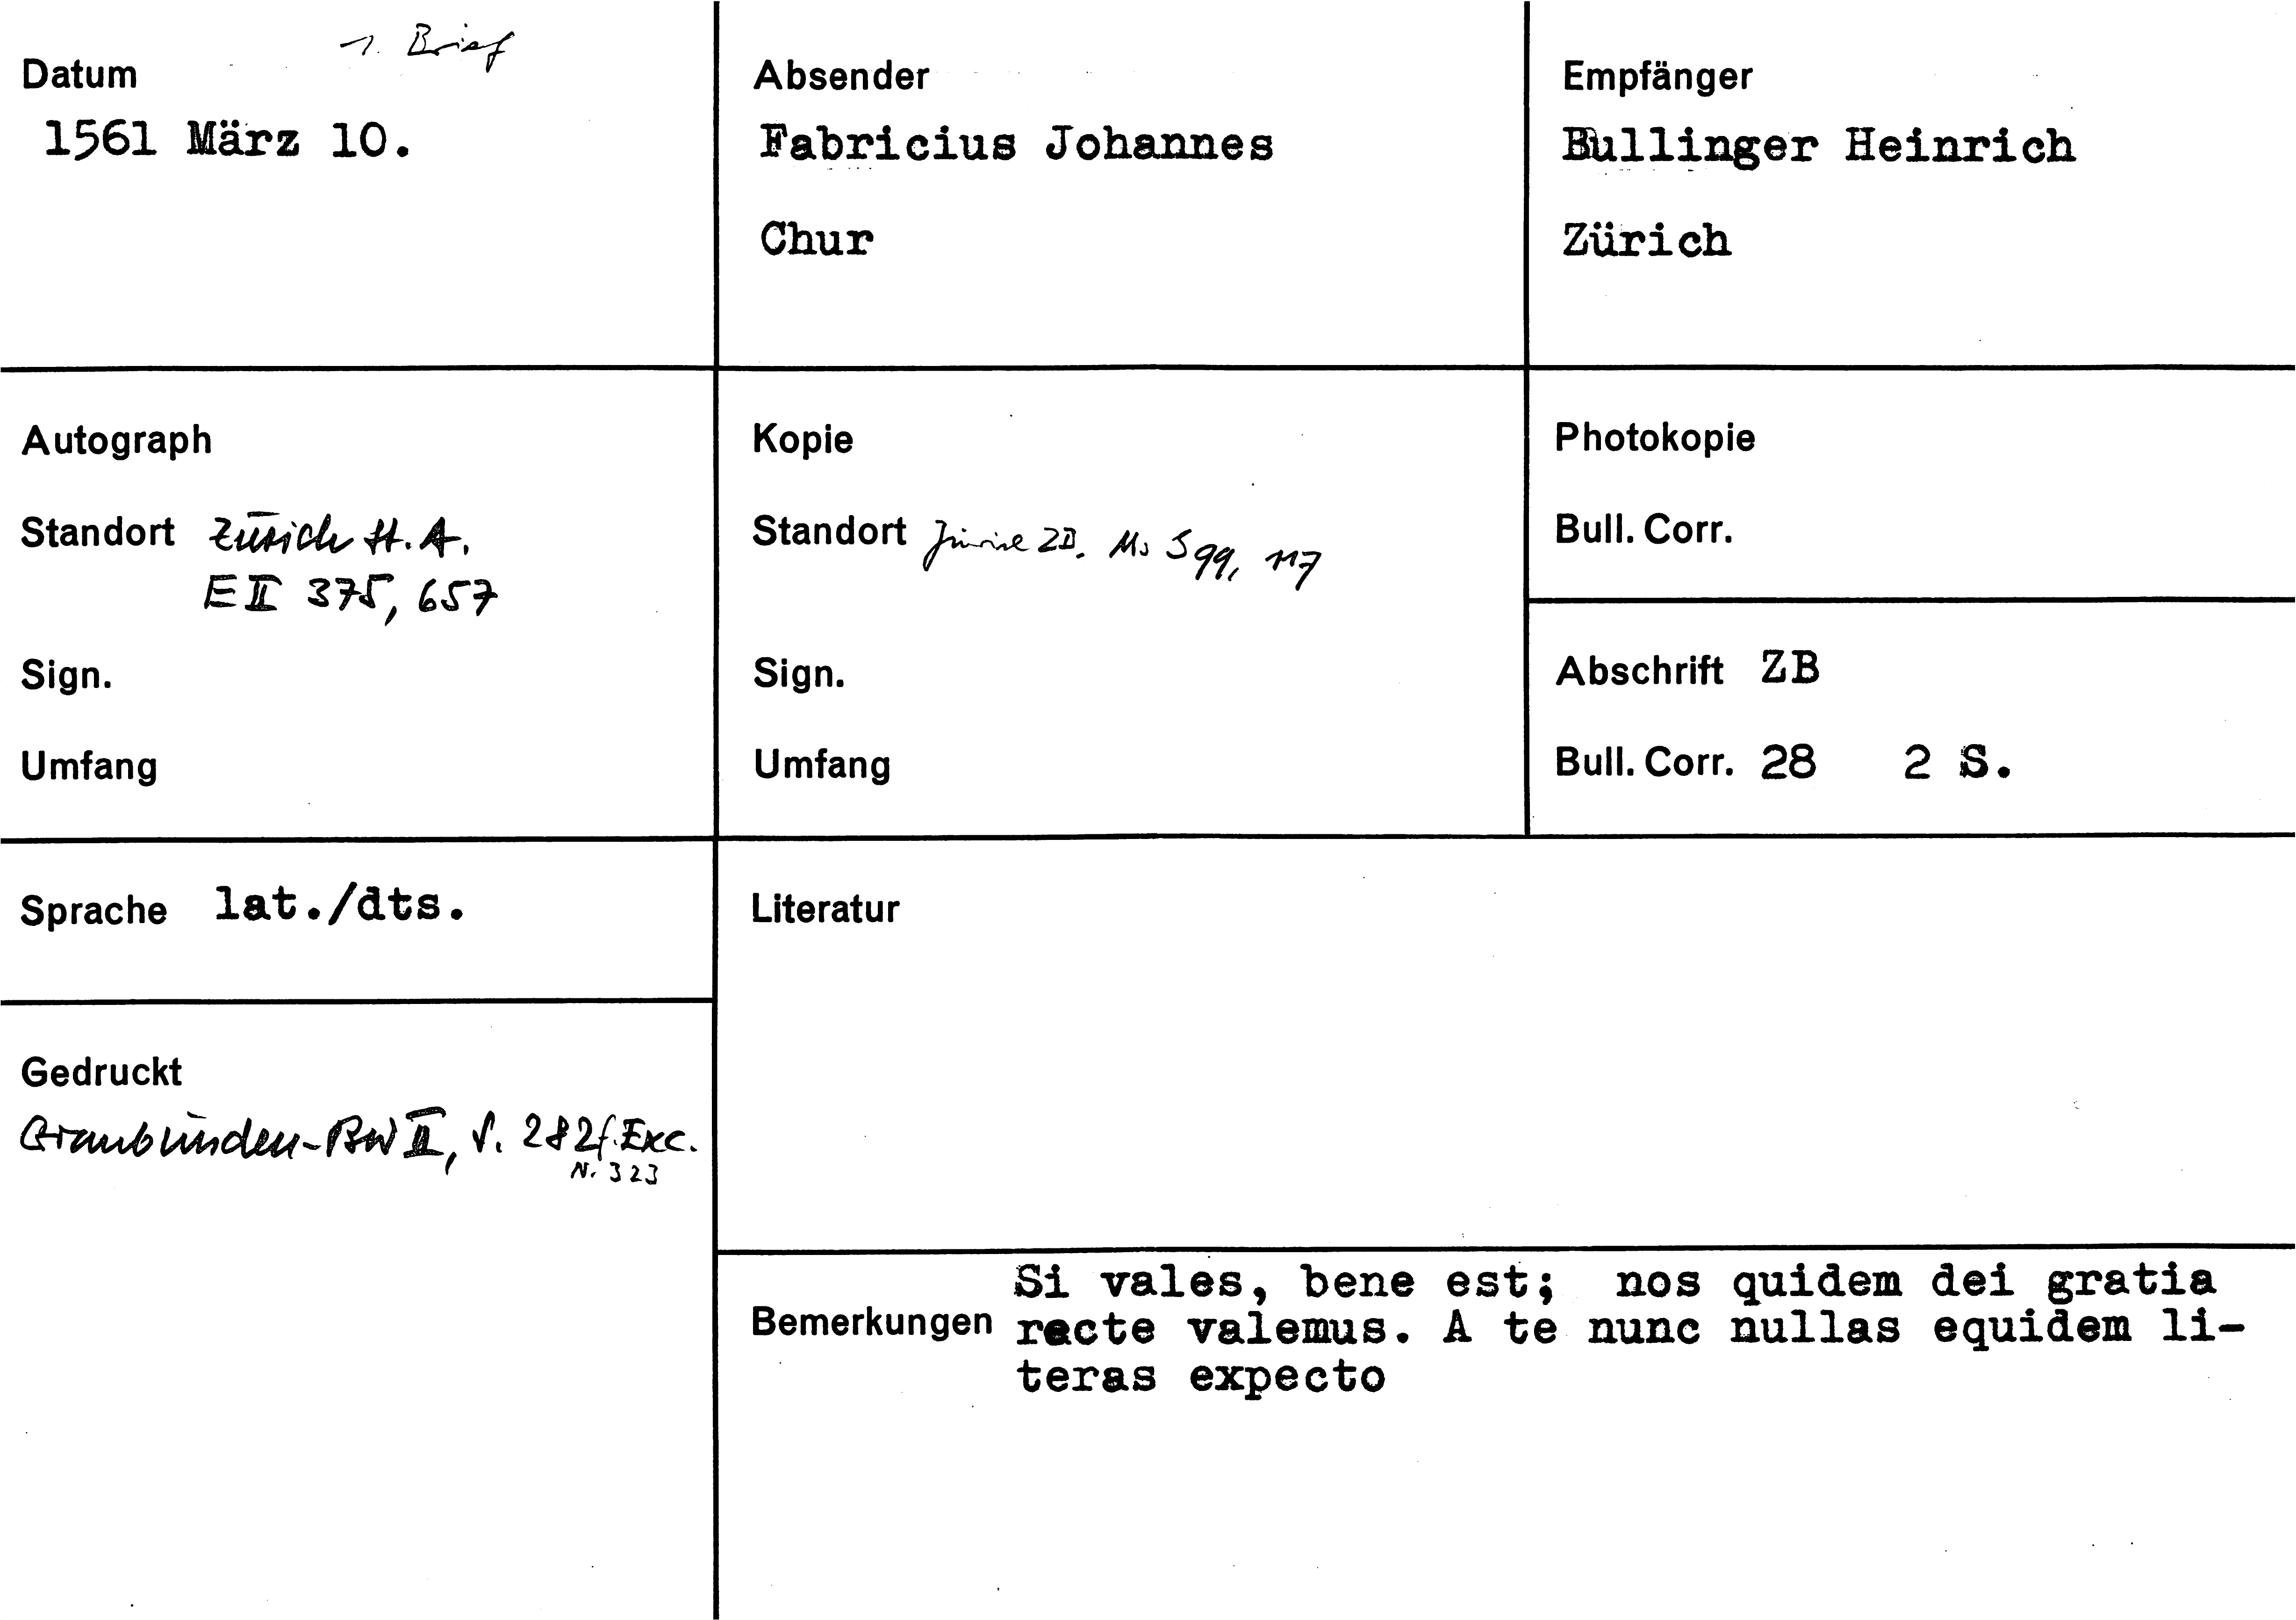 1. Brief
Datum
1561 März 10.
Absender
Fabricius Johannes
Chur
Empfänger
Bullinger Heinrich
Zürich
Autograph
Standort Zürich St. A.
E II 375, 657
Sign.
Umfang
Kopie
Standort Zürich ZB. Ms S 99, 117
Sign.
Umfang
Photokopie
Bull. Corr.
Abschrift ZB
Bull. Corr. 28 2 S.
Sprache lat./dts.
Literatur
Gedruckt
Graubünden-BW II, S. 282f. Exc.
N. 323
Si vales, bene est; nos quidem dei gratia
Bemerkungen recte valemus. A te nunc nullas equidem li-
teras expecto